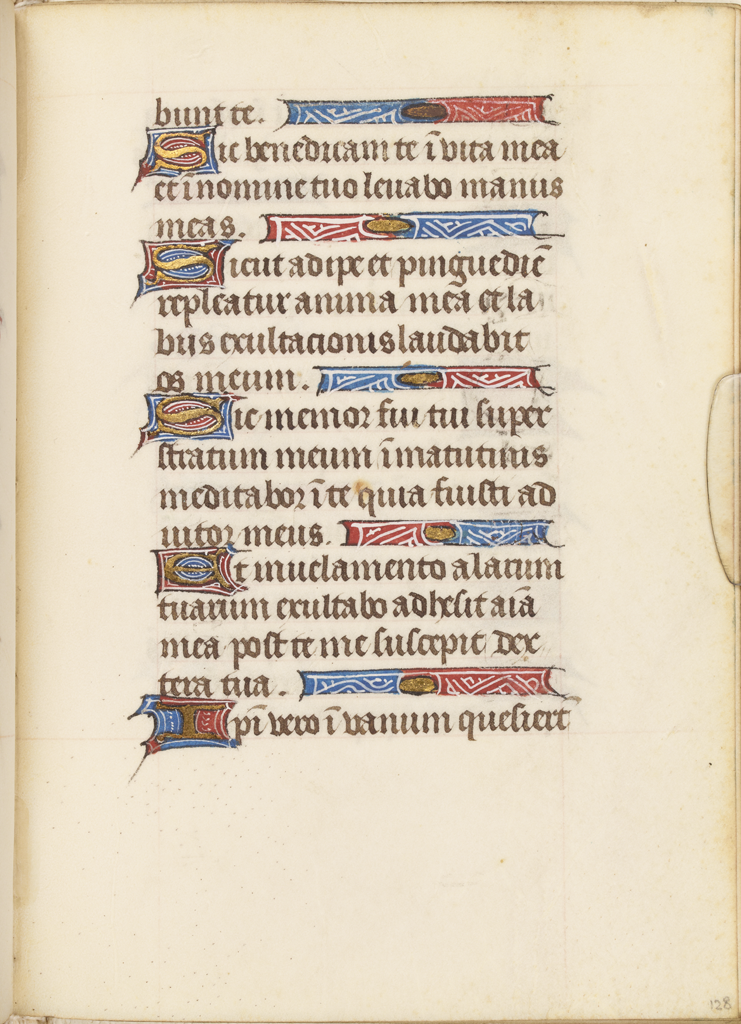 bunt te.
Sic benedicam te ī vita mea
et ī nomine tuo levabo manus
meas.
Sicut adipe et pinguediē
repleatur anima mea et la
biis exultacionis laudabit
os meum.
Sic memor fui tui super
stratum meum ī matutinis
meditabor ī te quia fuisti ad
iutor meus.
Et in velamento alarum
tuarum exultabo adhesit aīa
mea post te me suscepit dex
tera tua.
Ipī vero ī vanum quesiert̄
128